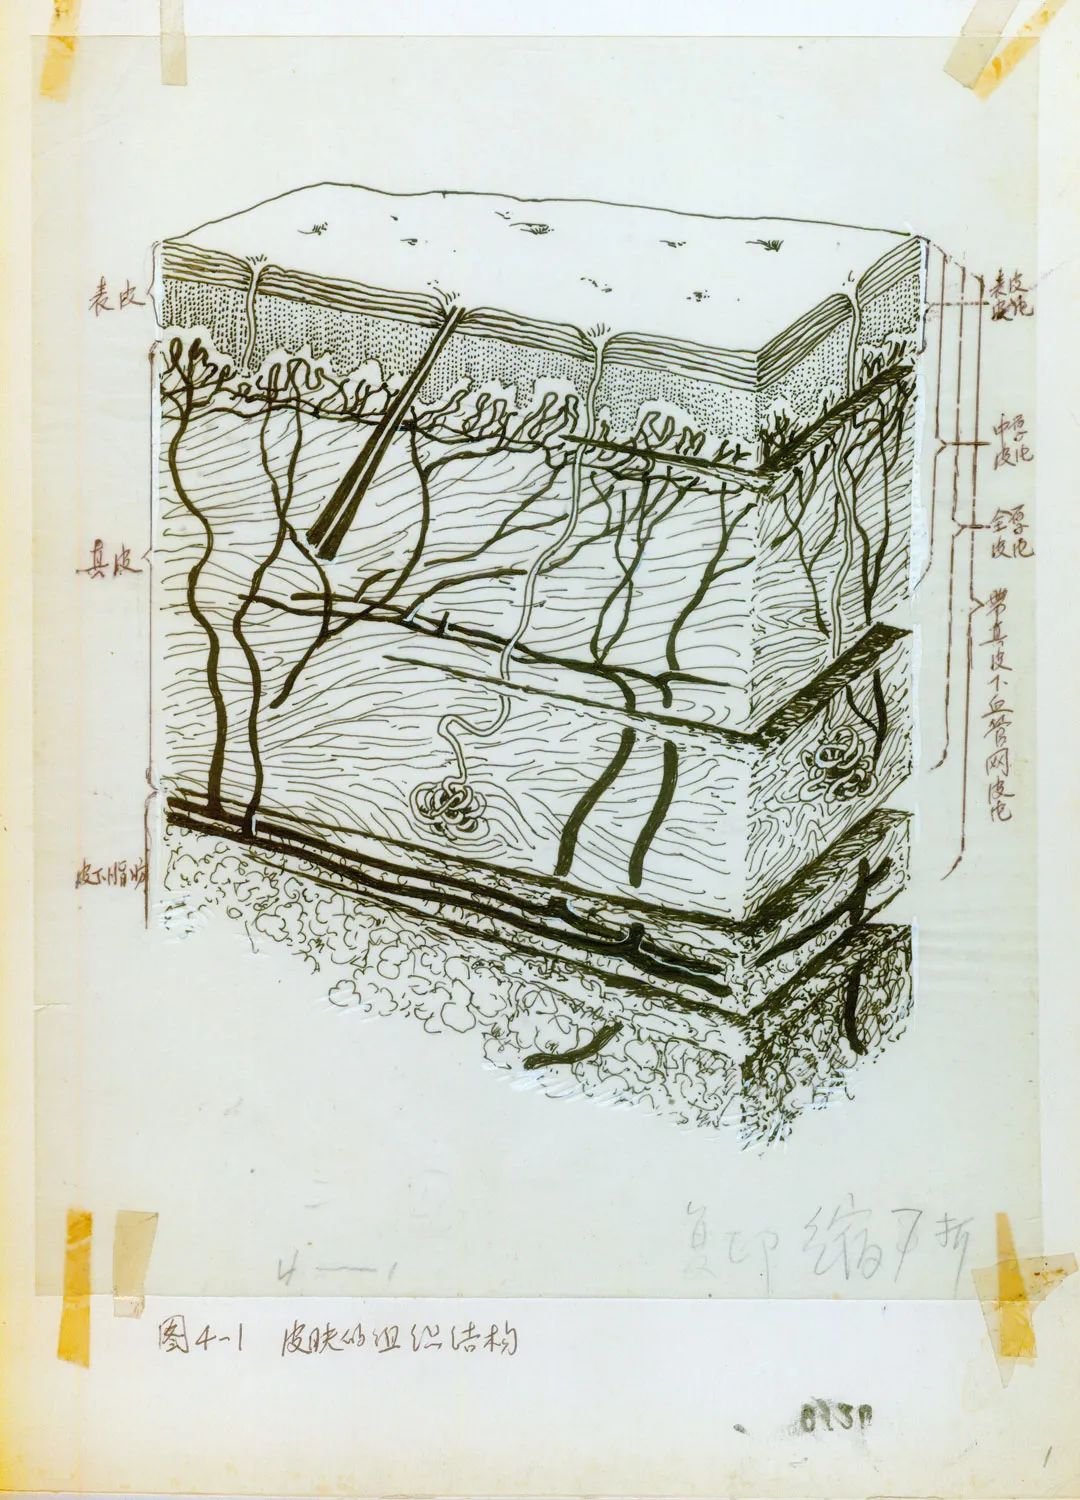 表皮
真皮
皮下脂肪
表皮
皮片
中厚
皮片
全厚
皮片
带真皮下血管网皮片
4—1
复印缩7折
图4-1 皮肤的组织结构
1